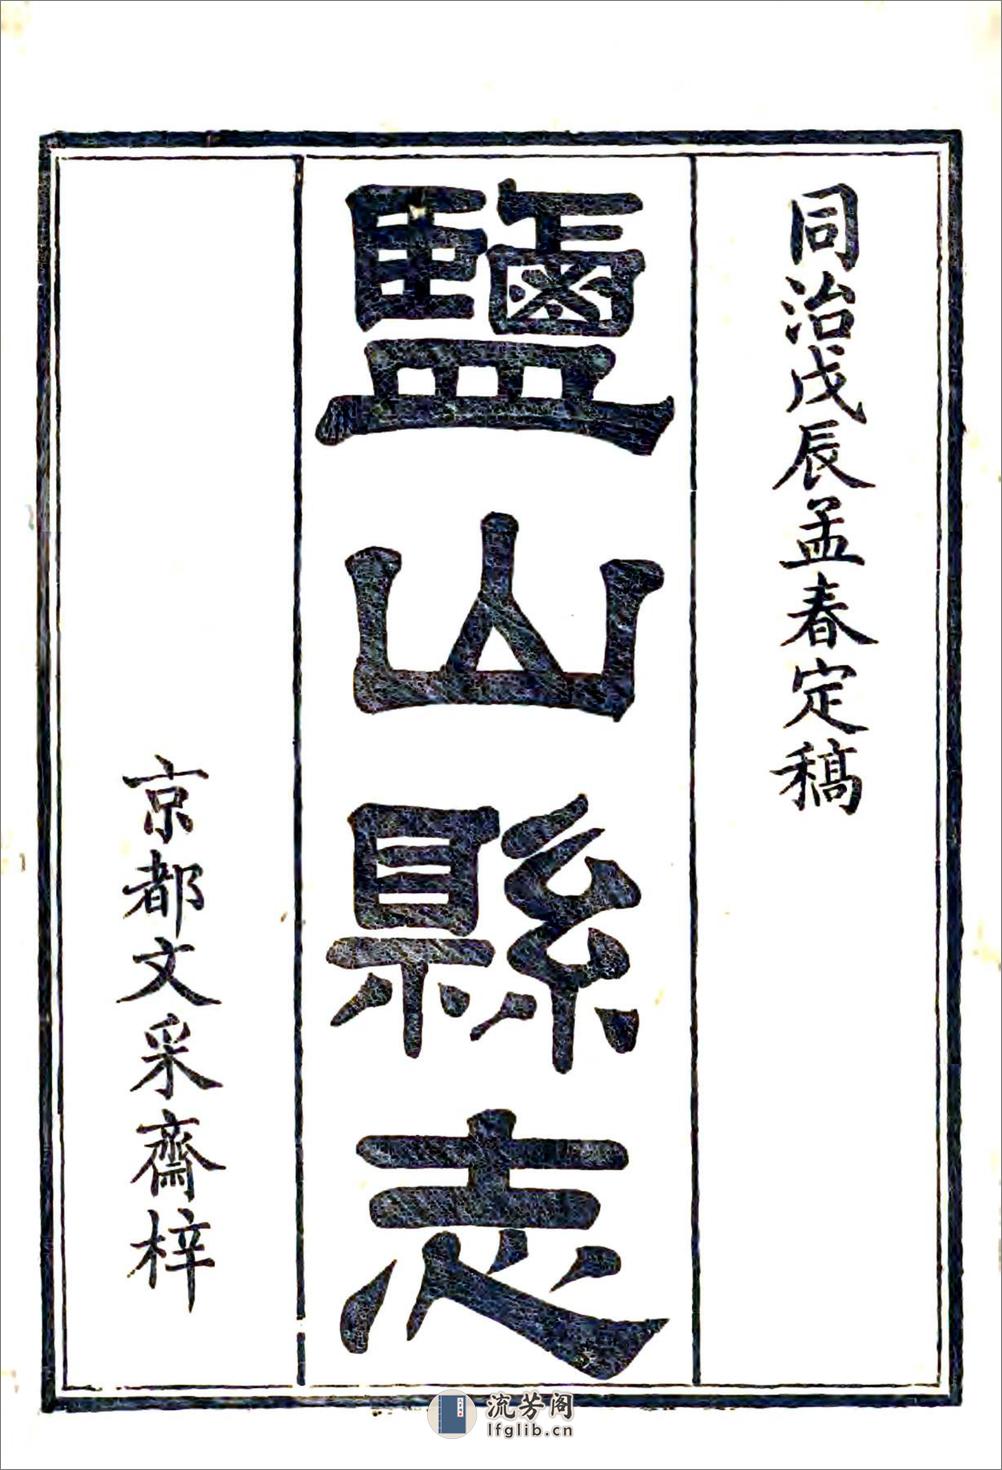 同治戊辰孟春定稿
鹽山縣志
京都文采齋梓
流芳阁
lfglib.cn